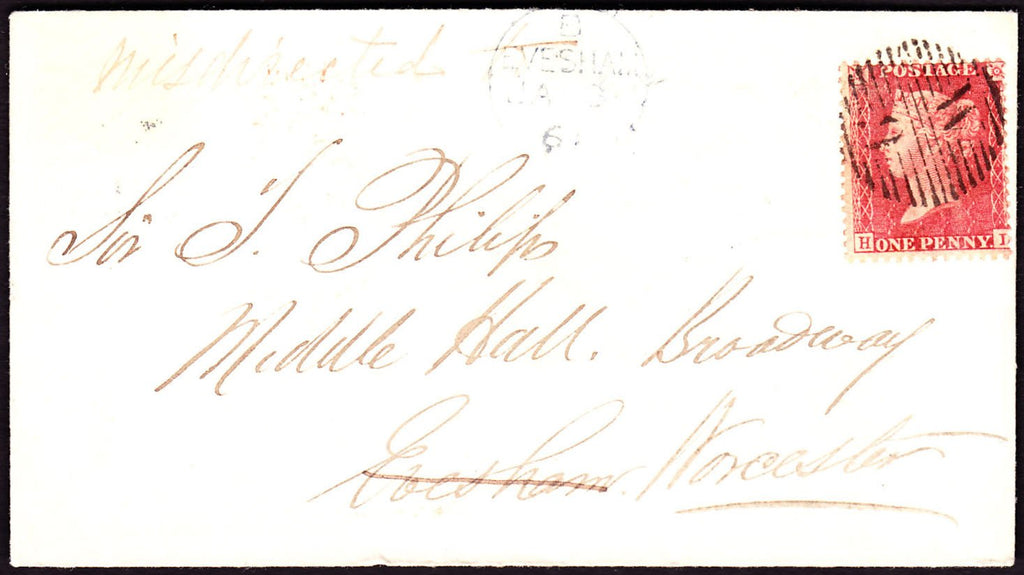 misdirected
B
EVESHAM
JA 3
61
POSTAGE
H ONE PENNY L
Sir T. Philips
Middle Hall. Broadway
Evesham. Worcester